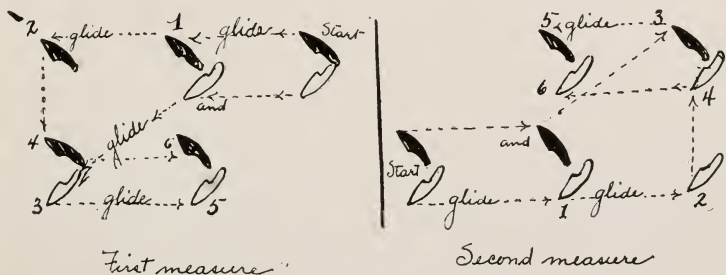 2 glide 1 glide Start
and
glide
4 6
3 glide 5
First measure
5 glide 3
6 4
Start and
glide 1 glide 2
Second measure